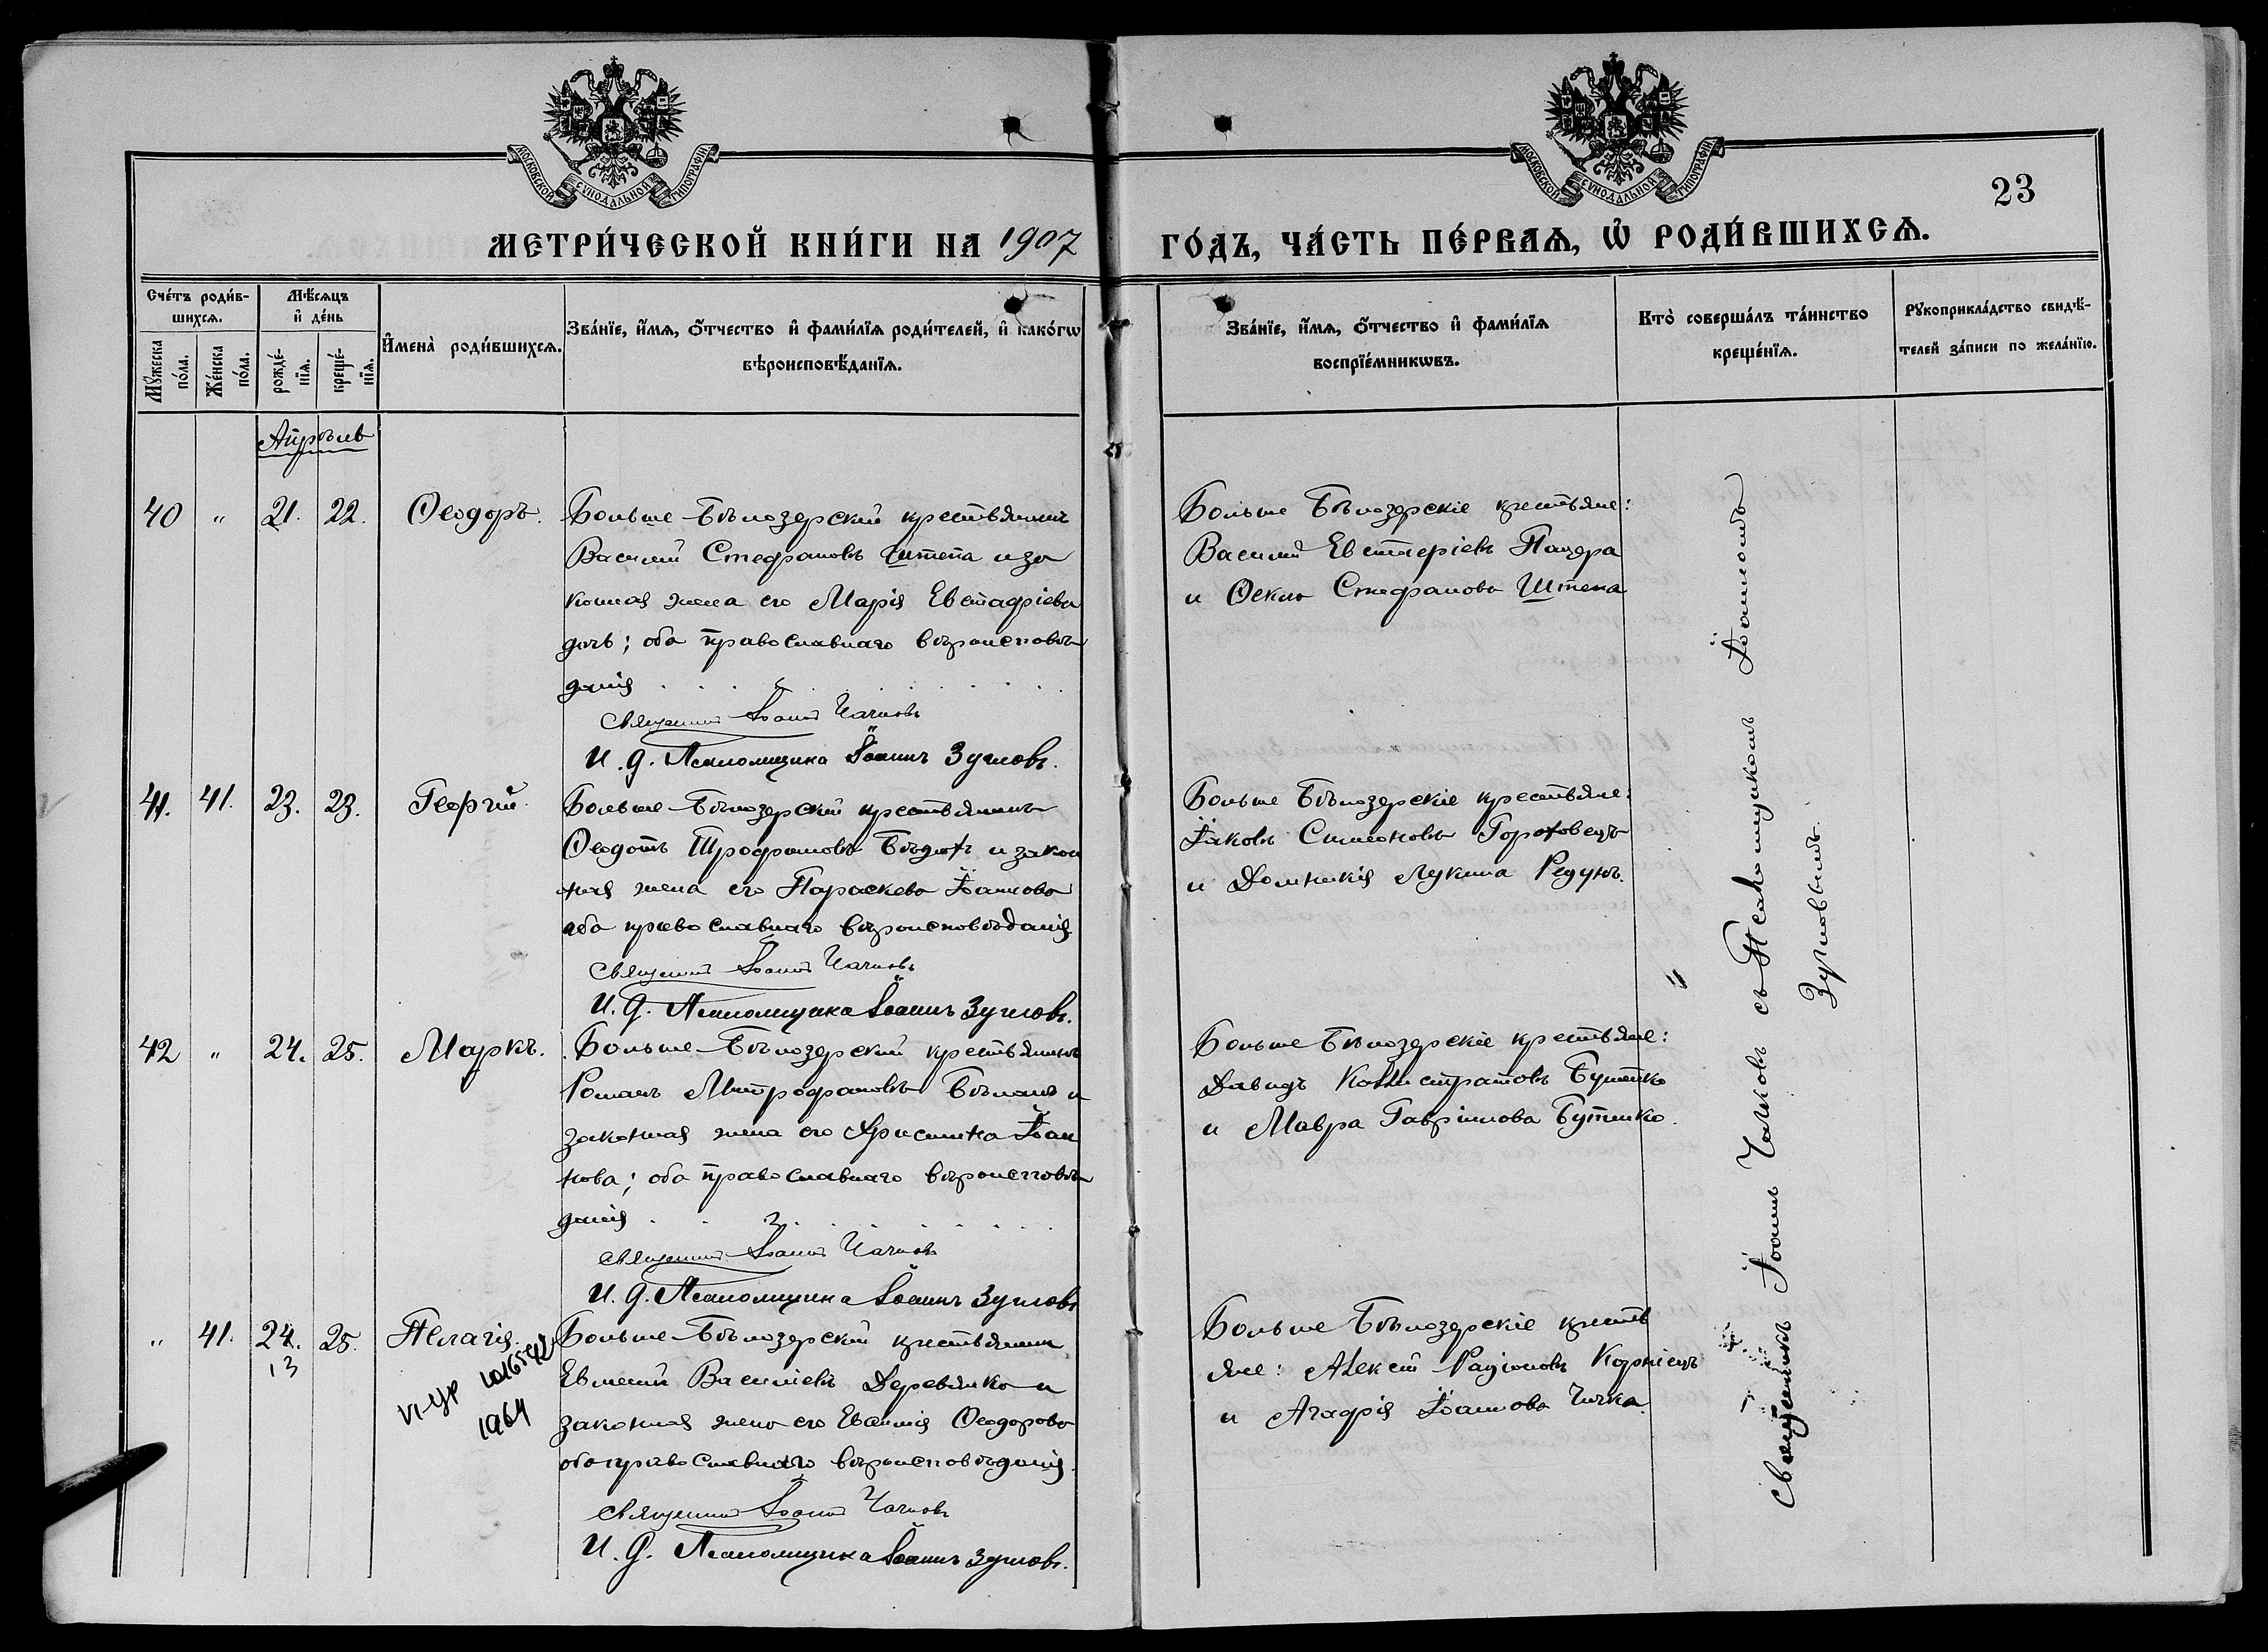 МОСКОВСКОЙ СѴНОДАЛЬНОЙ ТИПОГРАФІИ
МОСКОВСКОЙ СѴНОДАЛЬНОЙ ТИПОГРАФІИ
23
МЕТРИ́ЧЕСКОЙ КНИ́ГИ НА 1907 ГО́ДЪ, ЧА́СТЬ ПЕ́РВАѦ, Ѡ҆ РОДИ́ВШИХСѦ.
Сче́тъ роди́в-
шихсѧ.
Мꙋ́жеска по́ла.
Же́нска по́ла.
Мѣ́сѧцъ
и҆ де́нь
рожде́-
нїѧ.
креще́-
нїѧ.
И҆мена̀ роди́вшихсѧ.
Зва́нїе, и҆́мѧ, ѻ҆́тчество и҆ фами́лїѧ роди́телей, и҆ како́гѡ
вѣроисповѣ́данїѧ.
Зва́нїе, и҆́мѧ, ѻ҆́тчество и҆ фами́лїѧ
воспрїе́мникѡвъ.
Кто̀ соверша́лъ та́инство
креще́нїѧ.
Рꙋкоприкла́дство свидѣ́-
телей за́писи по жела́нїю.
Апрѣль
40 " 21. 22. Ѳеодоръ.
Больше-Бѣлозерскій крестьянинъ
Василій Стефановъ Штепа и за
конная жена его Марія Евстафіева
дочь; оба православнаго вѣроисповѣ
данія
Священникъ Іоаннъ Чалковъ
И. д. Псаломщика Іоаннъ Зуиловъ.
Больше Бѣлозерскіе крестьяне:
Василій Евстафіевъ Пацера
и Ѳекла Стефанова Штепа
41. 41. 23. 23. Георгій.
Больше-Бѣлозерскій крестьянинъ
Ѳеодотъ Трофимовъ и закон
ная жена его Параскева Іоаннова
оба православнаго вѣроисповѣданія
Священникъ Іоаннъ Чалковъ
И. д. Псаломщика Іоаннъ Зуиловъ.
Больше Бѣлозерскіе крестьяне:
Іаковъ Симеоновъ Гороховецъ
и Домникія Лукина Редунъ.
42 " 24. 25. Маркъ.
Больше-Бѣлозерскій крестьянинъ
Романъ Митрофановъ Бѣланъ и
законная жена его Христина Іоан
нова; оба православнаго вѣроисповѣ
данія
Священникъ Іоаннъ Чалковъ
И. д. Псаломщика Іоаннъ Зуиловъ
Больше Бѣлозерскіе крестьяне:
Давидъ Каллистратовъ Бутенко
и Мавра Гавріилова Бутенко.
" 41. 24. 25. Пелагія.
13
1964
Больше-Бѣлозерскій крестьянинъ
Евменій Василіевъ Деревянко и
законная жена его Евѳимія Ѳеодорова
оба православнаго вѣроисповѣданія.
Священникъ Іоаннъ Чалковъ
И. д. Псаломщика Іоаннъ Зуиловъ.
Больше Бѣлозерскіе кресть
яне: Алексій Радіоновъ Корніецъ
и Агафія Іоаннова Чичка.
Священникъ Іоаннъ Чалковъ съ Псаломщикомъ Іоанномъ
Зуиловымъ.